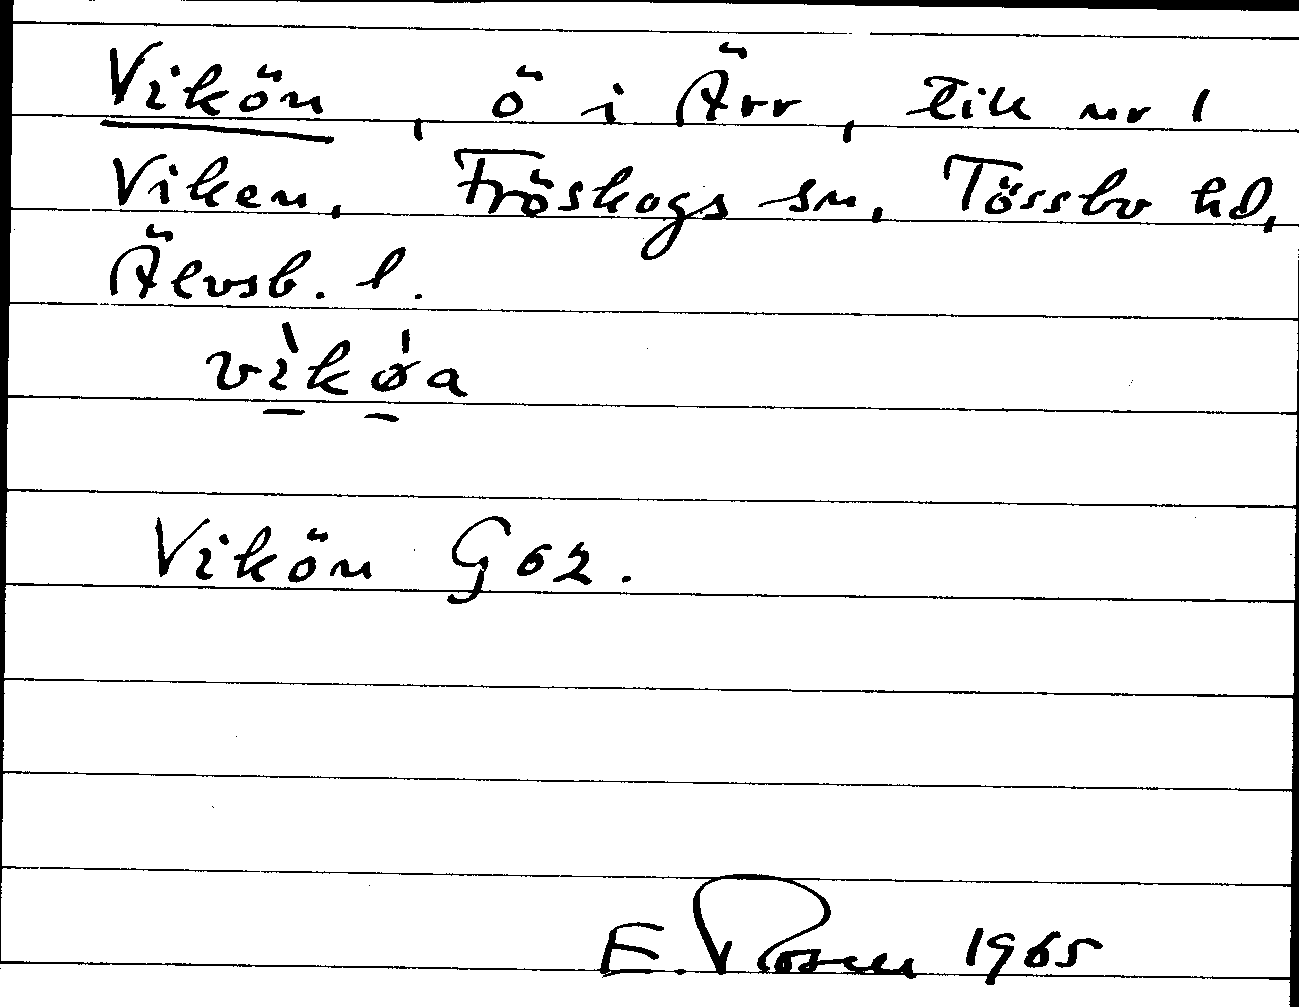 Vikön, ö i Ärr, till nr 1
Viken, Fröskogs sn, Tössbo hd,
Älvsb. l.
vìkø̍a
Vikön G 62.
E. Rosell 1965